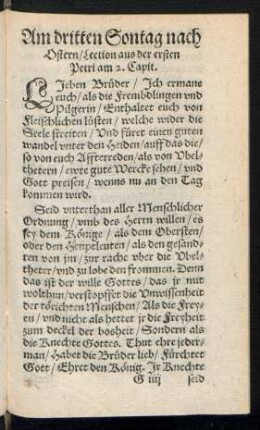 Am dritten Sontag nach
Ostern/Lection aus der ersten
Petri am 2. Capit.
LJeben Brüder/ Jch ermane
euch/als die Frembdlingen vnd
Pilgerin/Enthaltet euch von
fleischlichen lüsten/ welche wider die
Seele streiten/ Vnd füret einen guten
wandel vnter den Heiden/auff das die/
so von euch Affterreden/als von Vbel-
thetern/ ewre gute Wercke sehen/ vnd
Gott preisen/ wenns nu an den Tag
kommen wird.
Seid vnterthan aller Menschlicher
Ordnung/ vmb des Herrn willen/ es
sey dem Könige/ als dem Obersten/
oder den Heuptleuten/als den gesand-
ten von jm/ zur rache vber die Vbel-
theter/vnd zu lobe den frommen. Denn
das ist der wille Gottes/ das jr mit
wolthun/verstopffet die Vnwissenheit
der törichten Menschen/ Als die Frey-
en/ vnd nicht als hettet jr die Freyheit
zum deckel der bosheit/ Sondern als
die Knechte Gottes. Thut ehre jeder-
man/ Habet die Brüder lieb/ Fürchtet
Gott/ Ehret den König. Jr Knechte
G iiij seid